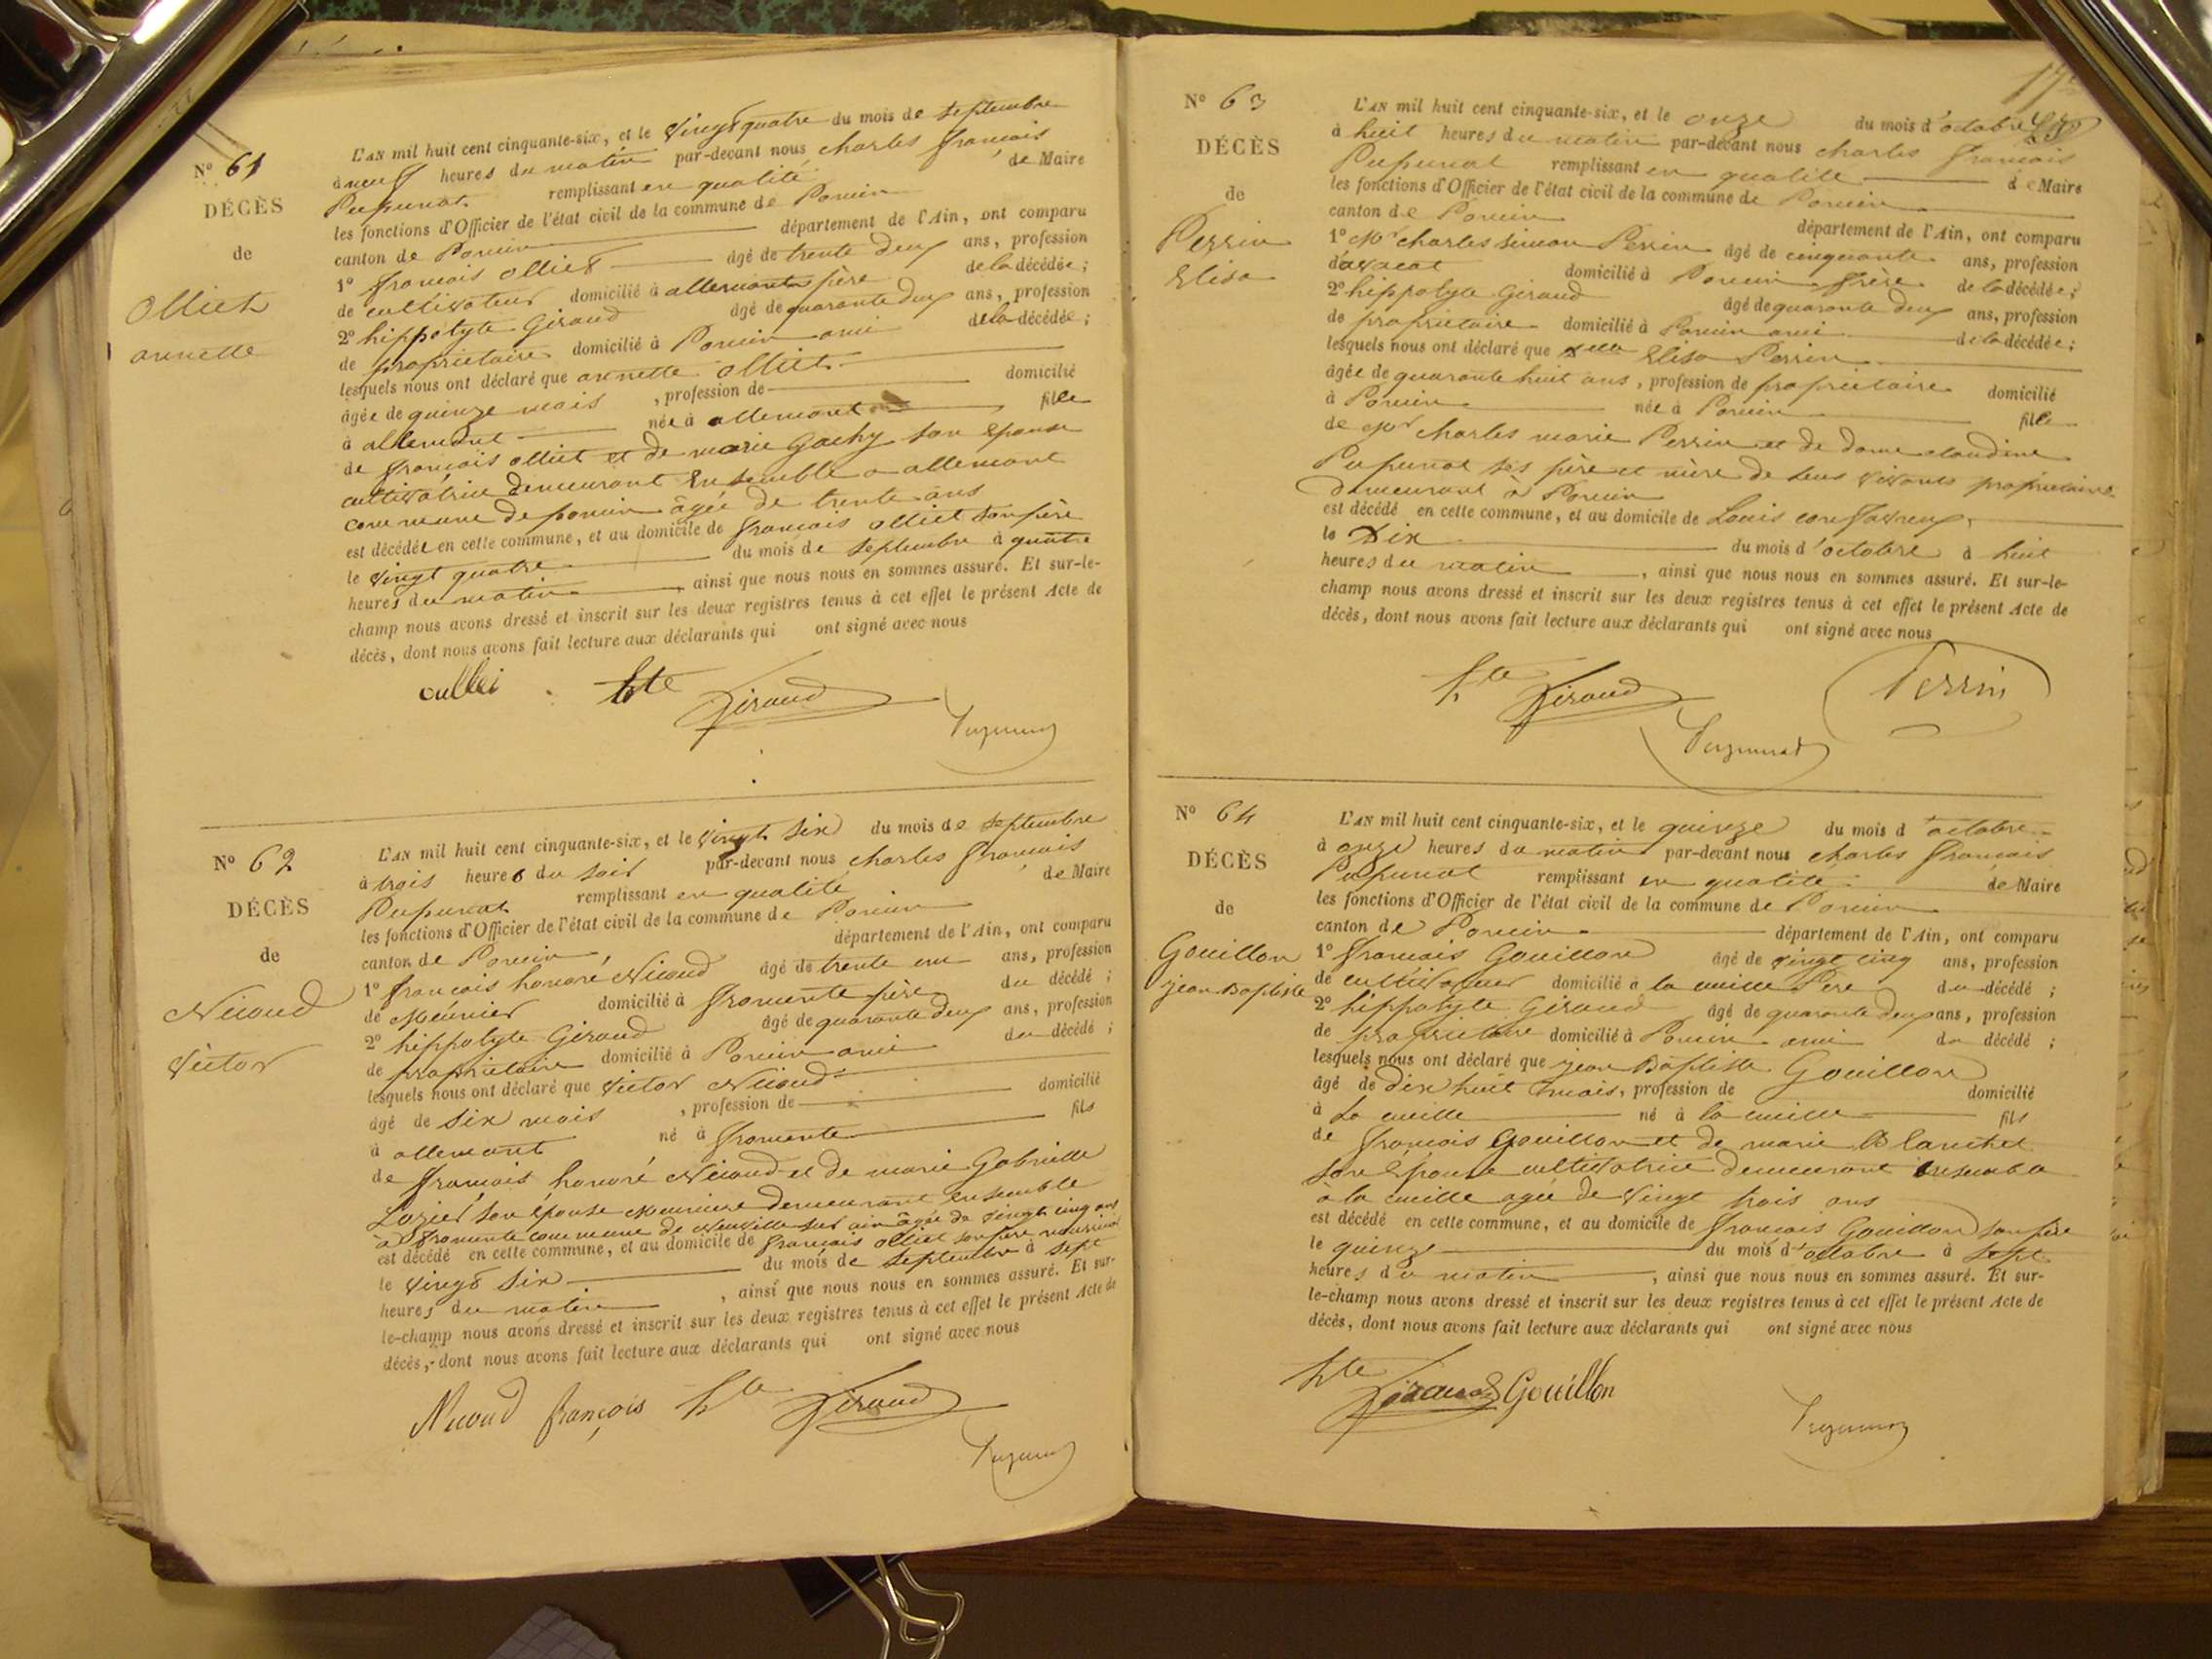 N° 61
DÉCÈS
de
Olliet
annette
L'AN mil huit cent cinquante-six, et le vingt quatre du mois de septembre
à neuf heures du matin par-devant nous charles françois
Pupunat remplissant en qualité de Maire
les fonctions d'Officier de l'état civil de la commune de Poncin
canton de Poncin département de l'Ain, ont comparu
1° françois olliet âgé de trente deux ans, profession
de cultivateur domicilié à allement père de la décédée;
2° hippolyte Giraud âgé de quarante deux ans, profession
de propriétaire domicilié à Poncin ami de la décédée;
lesquels nous ont déclaré que annette olliet
âgée de quinze mois, profession de domicilié
à allement née à allement fille
de françois olliet et de marie Gachy son épouse
cultivatrice demeurant ensemble a allement
commune de poncin âgée de trente ans
est décédée en cette commune, et au domicile de françois olliet son père
le vingt quatre du mois de septembre à quatre
heures du matin, ainsi que nous nous en sommes assuré. Et sur-le-
champ nous avons dressé et inscrit sur les deux registres tenus à cet effet le présent Acte de
décès, dont nous avons fait lecture aux déclarants qui ont signé avec nous
hte Giraud
Pupunat
N° 62
DÉCÈS
de
Nicoud
Victor
L'AN mil huit cent cinquante-six, et le vingt six du mois de septembre
à trois heures du soir par-devant nous charles françois
Pupunat remplissant en qualité de Maire
les fonctions d'Officier de l'état civil de la commune de Poncin
canton de Poncin département de l'Ain, ont comparu
1° françois honoré Nicoud âgé de trente un ans, profession
de Meunier domicilié à fromente père du décédé;
2° hippolyte Giraud âgé de quarante deux ans, profession
de propriétaire domicilié à Poncin ami du décédé;
lesquels nous ont déclaré que Victor Nicoud
âgé de six mois, profession de domicilié
à allement né à fromente fils
de françois honoré Nicoud et de marie Gabrielle
Lozier son épouse Meuniere demeurant ensemble
à fromente commune de Neuville sur ain âgée de vingt cinq ans
est décédé en cette commune, et au domicile de françois olliet son père nourricier
le vingt six du mois de septembre à sept
heures du matin, ainsi que nous nous en sommes assuré. Et sur-
le-champ nous avons dressé et inscrit sur les deux registres tenus à cet effet le présent Acte de
décès, dont nous avons fait lecture aux déclarants qui ont signé avec nous
Nicoud françois hte Giraud
Pupunat
N° 63
DÉCÈS
de
Perrin
Elisa
L'AN mil huit cent cinquante-six, et le onze du mois d'octobre
à huit heures du matin par-devant nous charles françois
Pupunat remplissant en qualité de Maire
les fonctions d'Officier de l'état civil de la commune de Poncin
canton de Poncin département de l'Ain, ont comparu
1° Mr charles simon Perrin âgé de cinquante ans, profession
d'avocat domicilié à Poncin frère de la décédée;
2° hippolyte Giraud âgé de quarante deux ans, profession
de propriétaire domicilié à Poncin ami de la décédée;
lesquels nous ont déclaré que delle Elisa Perrin
âgée de quarante huit ans, profession de propriétaire domicilié
à Poncin née à Poncin fille
de Mr charles marie Perrin et de dame claudine
Pupunat ses père et mère de leur vivants propriétaires
demeurant à Poncin
est décédé en cette commune, et au domicile de Louis
le Dix du mois d'octobre à huit
heures du matin, ainsi que nous nous en sommes assuré. Et sur-le-
champ nous avons dressé et inscrit sur les deux registres tenus à cet effet le présent Acte de
décès, dont nous avons fait lecture aux déclarants qui ont signé avec nous
hte Giraud Perrin
Pupunat
N° 64
DÉCÈS
de
Gouillon
jean Baptiste
L'AN mil huit cent cinquante-six, et le quinze du mois d'octobre
à onze heures du matin par-devant nous charles françois
Pupunat remplissant en qualité de Maire
les fonctions d'Officier de l'état civil de la commune de Poncin
canton de Poncin département de l'Ain, ont comparu
1° françois Gouillon âgé de vingt cinq ans, profession
de cultivateur domicilié à la cueille Père du décédé;
2° hippolyte Giraud âgé de quarante deux ans, profession
de propriétaire domicilié à Poncin ami du décédé;
lesquels nous ont déclaré que jean Baptiste Gouillon
âgé de dix huit mois, profession de domicilié
à La cueille né à la cueille fils
de françois Gouillon et de marie Blanchet
son épouse cultivatrice demeurant ensemble
à la cueille agée de vingt trois ans
est décédé en cette commune, et au domicile de françois Gouillon son père
le quinze du mois d'octobre à sept
heures du matin, ainsi que nous nous en sommes assuré. Et sur-
le-champ nous avons dressé et inscrit sur les deux registres tenus à cet effet le présent Acte de
décès, dont nous avons fait lecture aux déclarants qui ont signé avec nous
hte Giraud Gouillon
Pupunat